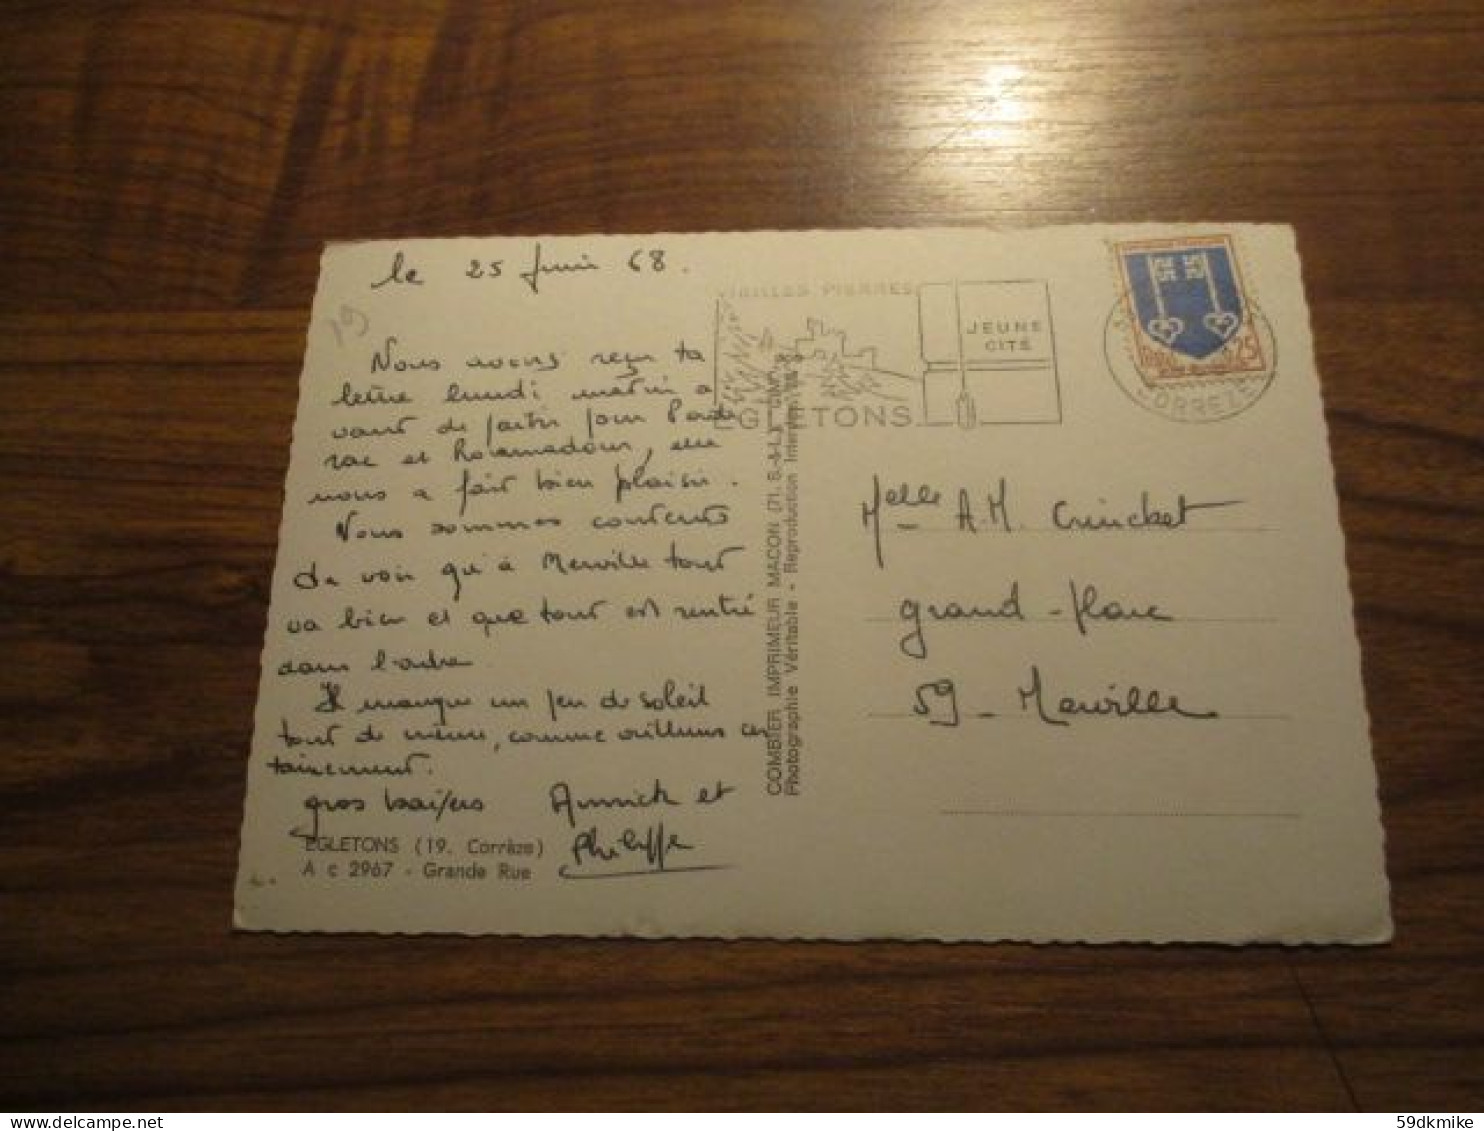 le 25 Juin 68.
19
Nous avons reçu ta
lettre lundi matin a
vant de partir pour Padi
rac et Rocamadour, elle
nous a fait bien plaisir.
Nous sommes contents
de voir qu'à Merville tout
va bien et que tout est rentré
dans l'ordre.
Il manque un peu de soleil
tout de même, comme ailleurs cer
tainement.
gros baisers Annick et
Philippe
EGLETONS (19. Corrèze)
A c 2967 - Grande Rue
COMBIER IMPRIMEUR MACON (71. S.-&-L.)
Photographie Véritable - Reproduction Interdite
VIEILLES PIERRES
JEUNE
CITÉ
EGLETONS
CORREZE
25
Melle A.M. Crinchet
grand-place
59 - Merville
59dkmike